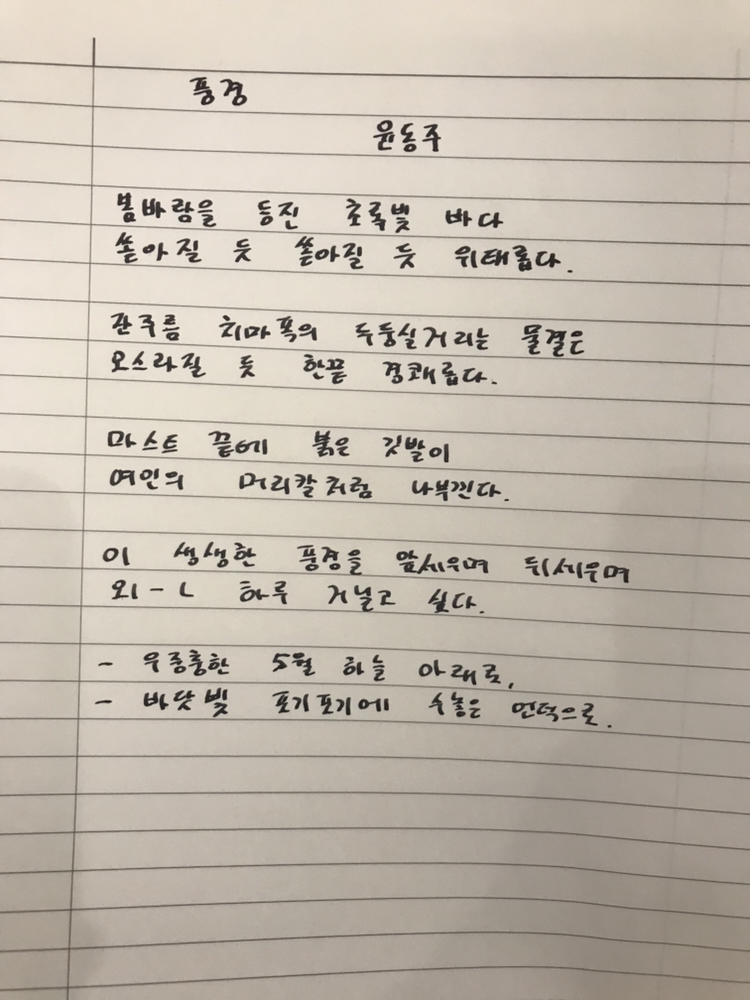 풍경
윤동주
봄바람을 등진 초록빛 바다
쏟아질 듯 쏟아질 듯 위태롭다.
잔주름 치마폭의 두둥실거리는 물결은
오스라질 듯 한끝 경쾌롭다.
마스트 끝에 붉은 깃발이
여인의 머리칼처럼 나부낀다.
이 생생한 풍경을 앞세우며 뒤세우며
외-ㄴ 하루 거닐고 싶다.
- 우중충한 5월 하늘 아래로,
- 바닷빛 포기포기에 수놓은 언덕으로.